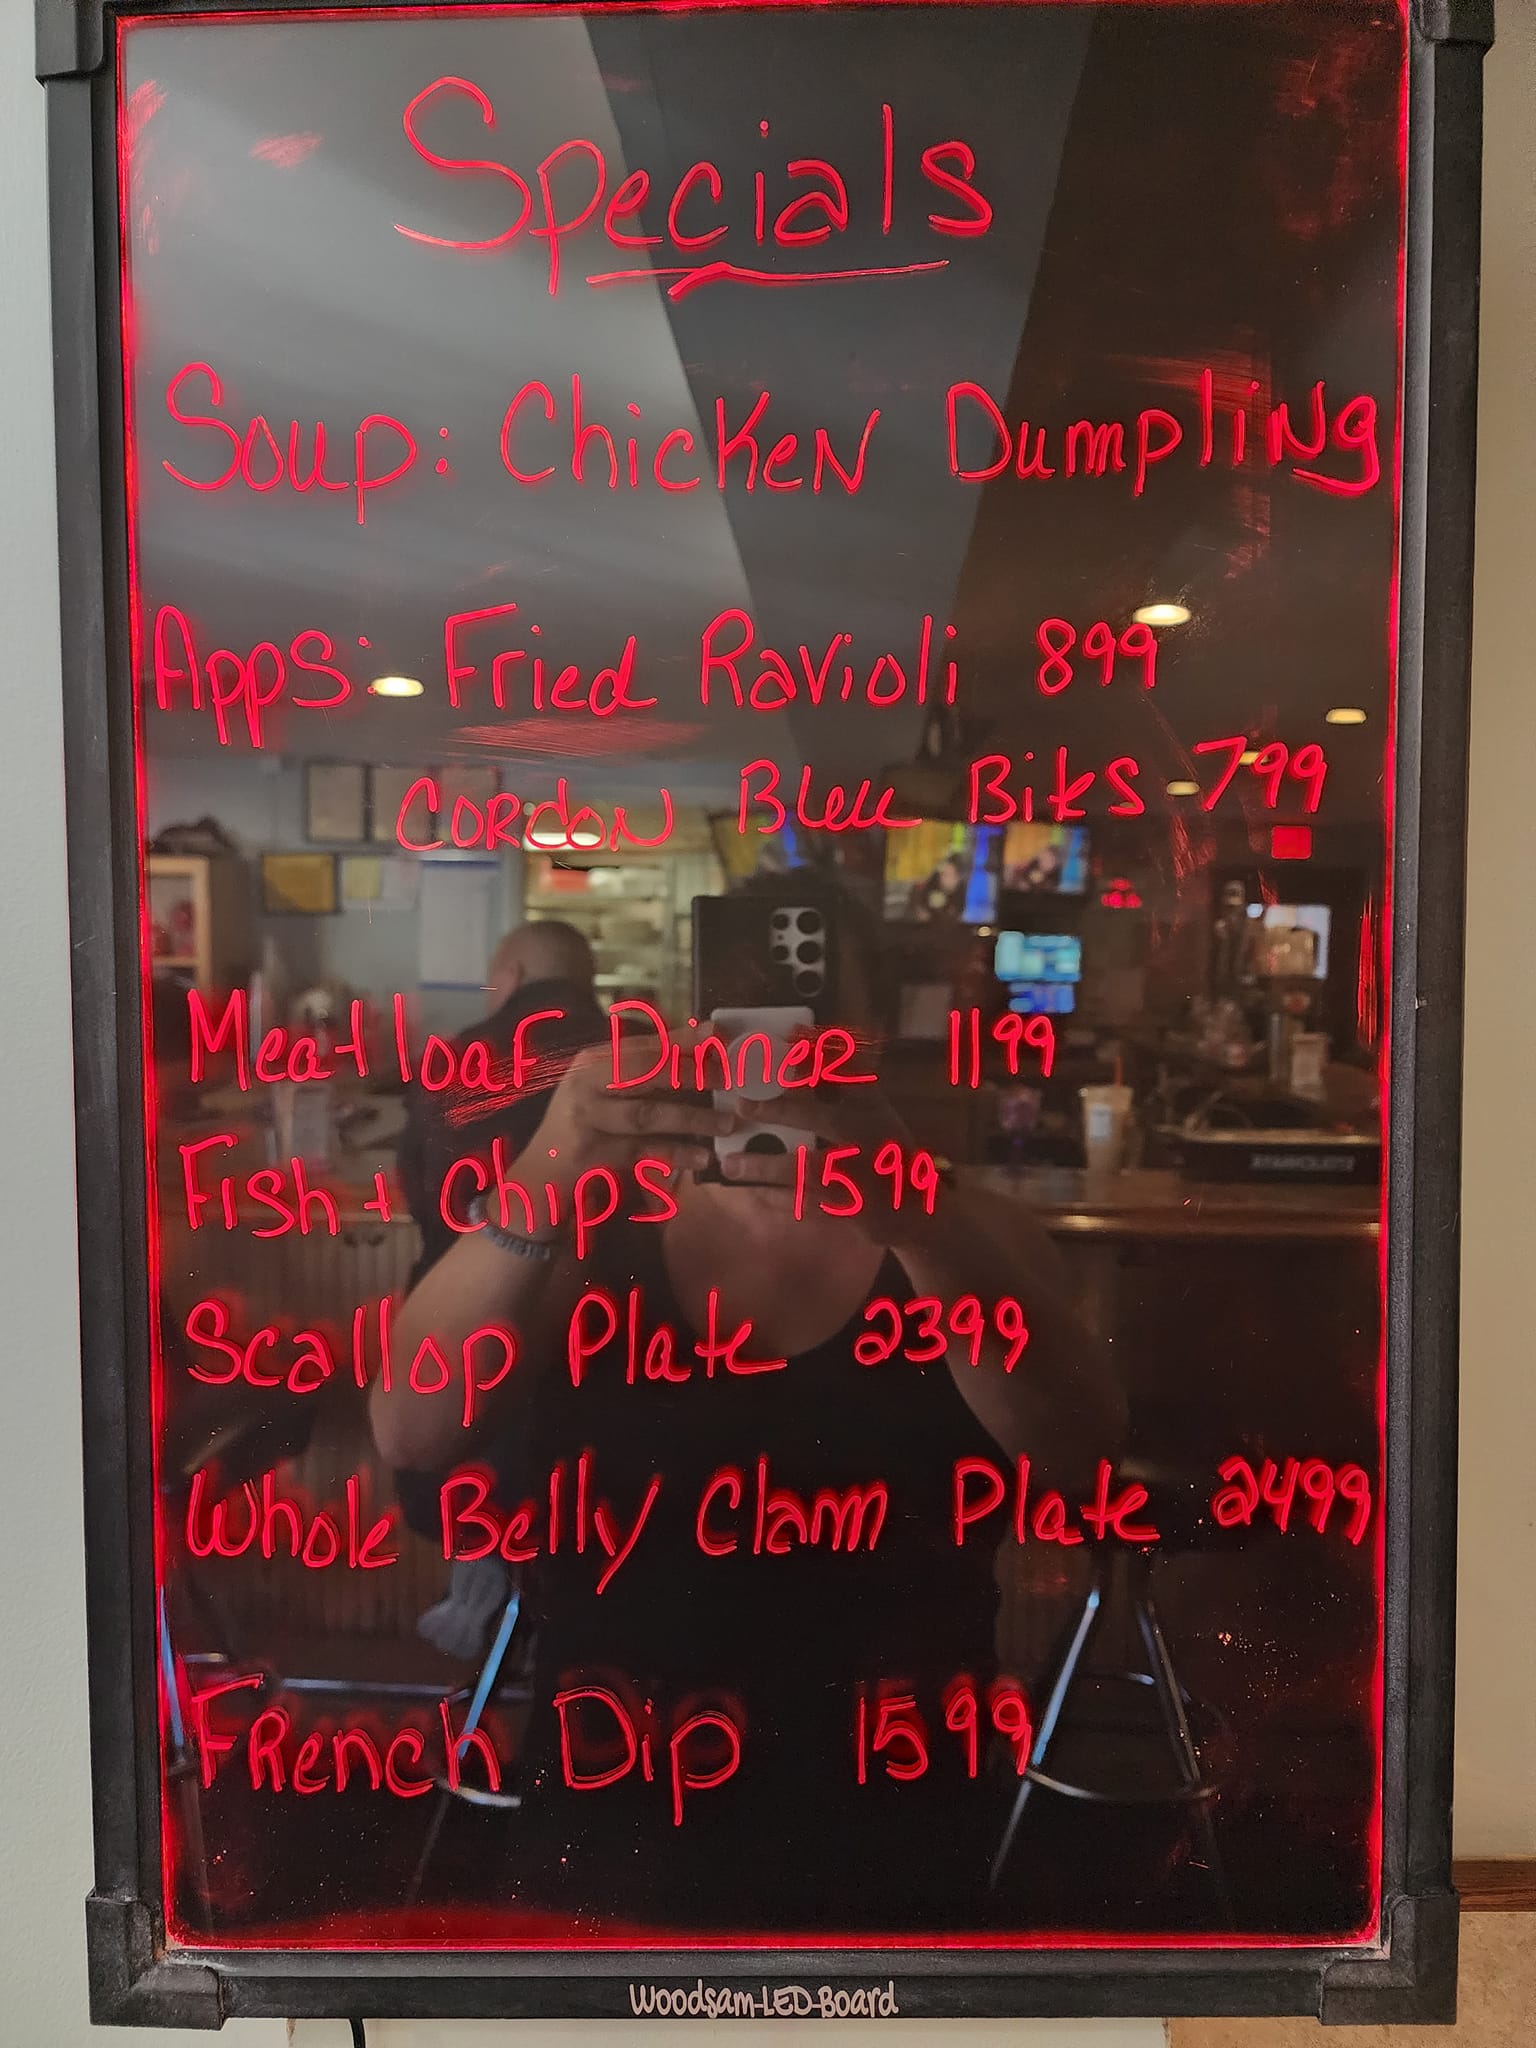 Specials
Soup: Chicken Dumpling
Apps: Fried Ravioli 899
Cordon Bleu Bites 799
Meatloaf Dinner 1199
Fish + Chips 1599
Scallop Plate 2399
Whole Belly Clam Plate 2499
French Dip 1599
Woodsam-LED-Board